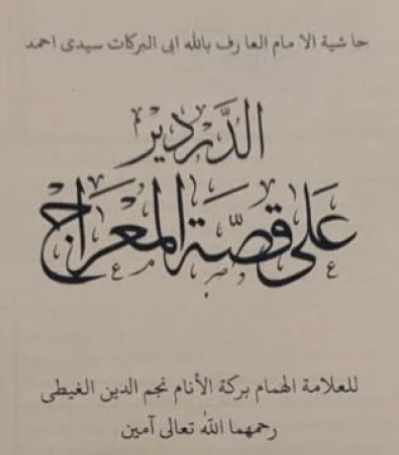 حاشية الامام العارف بالله ابى البركات سيدى احمد
الدَّردير
عَلى قصَّة المعْراج
للعلامة الهمام بركة الأنام نجم الدين الغيطى
رحمهما الله تعالى آمين